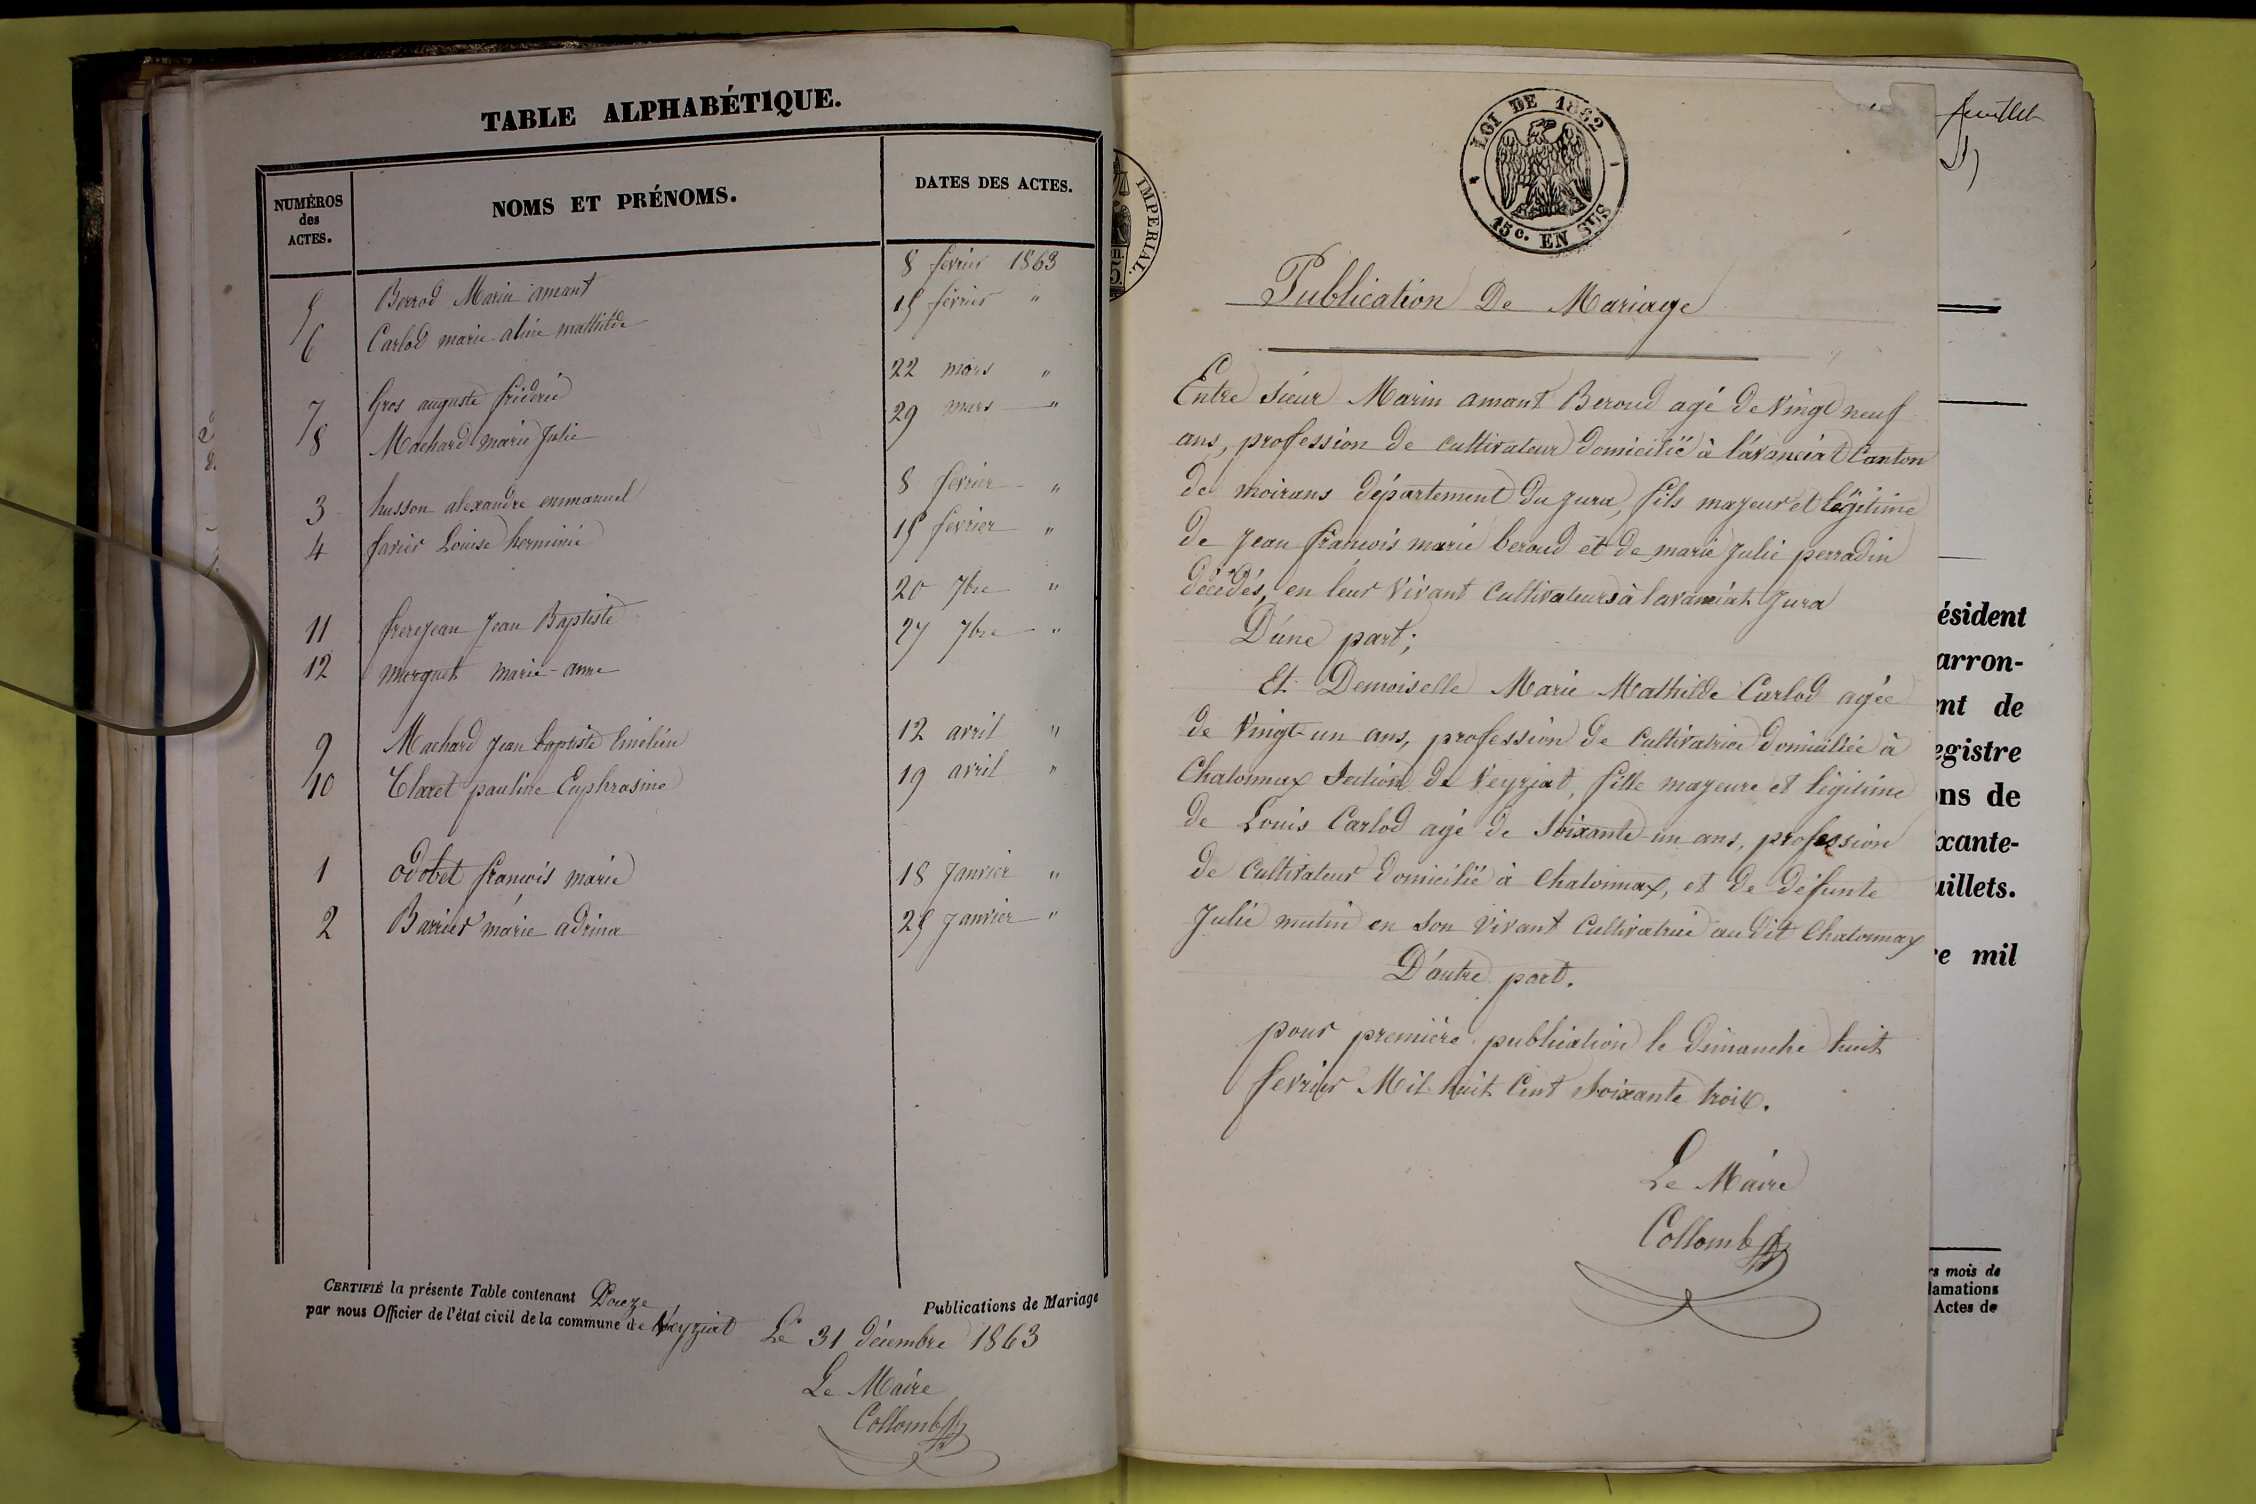 TABLE ALPHABÉTIQUE.
NUMÉROS des ACTES.
NOMS ET PRÉNOMS.
DATES DES ACTES.
5 Berrod Marin amant 8 février 1863
6 Carlod marie aline mathilde 15 février "
7 Gros auguste fréderic 22 mars "
8 Machard marie Julie 29 mars "
3 husson alexandre emmanuel 8 février "
4 favier Louise herminie 15 février "
11 frerejean Jean Baptiste 20 7bre "
12 morguet marie-anne 27 7bre "
9 Machard Jean baptiste Emélien 12 avril "
10 Claret pauline Euphrasine 19 avril "
1 odobet françois marie 18 Janvier "
2 Barrier marie adrina 25 Janvier "
CERTIFIÉ la présente Table contenant Douze Publications de Mariage
par nous Officier de l'état civil de la commune de Veyziat Le 31 décembre 1863
Le Maire
Collomb
IMPERIAL.
LOI DE 1862
15 c. EN SUS
feuillet
Publication De Mariage
Entre Sieur Marin amant Beroud agé de Vingt neuf
ans, profession de cultivateur domicilié à lavanciat Canton
de moirans département du jura, fils majeur et légitime
de Jean françois marie beroud et de marie Julie perradin
décédés, en leur Vivant Cultivateurs à lavanciat Jura
D'une part;
Et Demoiselle Marie Mathilde Carlod agée
de Vingt-un ans, profession de Cultivatrice domiciliée à
Chatonnax Section de Veyziat, fille majeure et légitime
de Louis Carlod agé de Soixante-un ans, profession
de Cultivateur domicilié à Chatonnax, et de défunte
Julie mutin en Son Vivant Cultivatrice au dit Chatonnax
D'autre part.
pour première publication le dimanche huit
fevrier Mil huit Cent Soixante trois.
Le Maire
Collomb
ésident
arron-
ent de
egistre
ons de
xante-
uillets.
re mil
rs mois de
lamations
Actes de